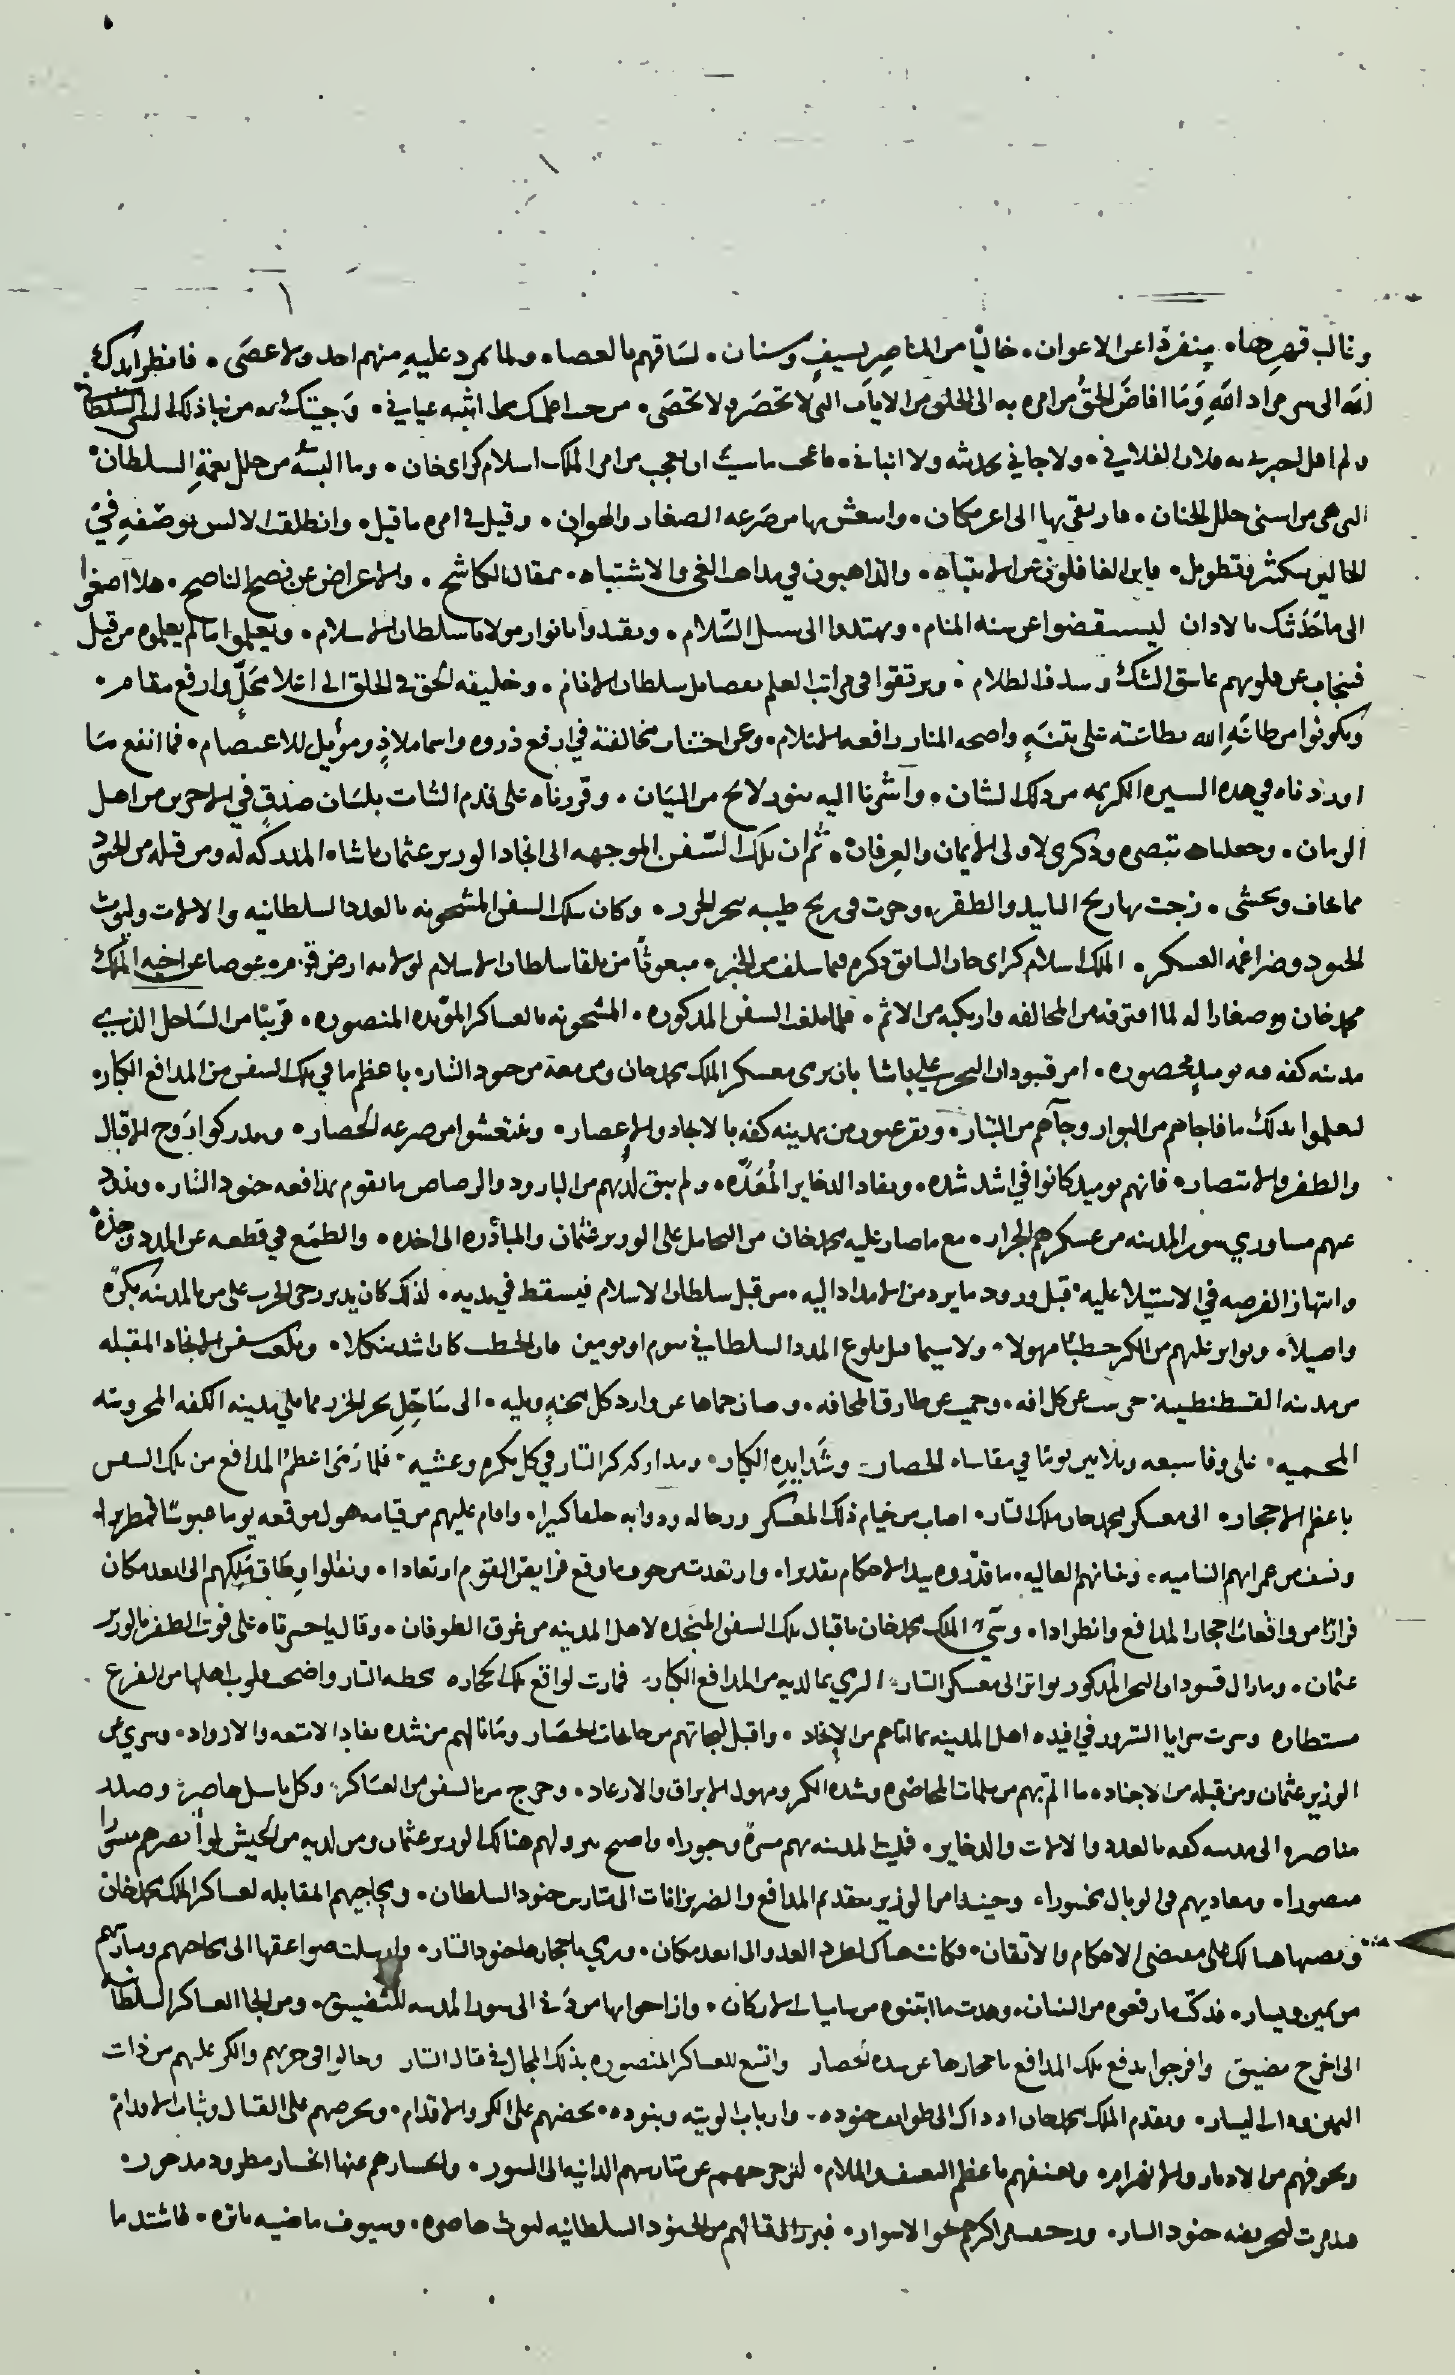 وغالب قهرها، منفردًا عن الاعوان. خاليًا من المناصر بسيف وسنان. لساقهم بالعصا، ولما تمرد عليه منهم احد ولا عصى. فانظر ايدك
الله الى سر مراد الله وما افاض الحق من امره به الى الخلق من الايات التي لا تحصر ولا تحصى. من حيث اعلمك بما اثبته عياني. وجيتك من نبا ذلك السلطان
ولم اقل اخبرني به فلان الفلاني. ولا جاني بحديثه ولا انباني. فاعجب ما شيت ان تعجب من امر الملك اسلام كراى خان. وما البسه من حلل نعمة السلطان
التي هي من اسنى حلل الجنان. فارتقى بها الى اعز مكان. وانتعش بها من صرعه الصغار والهوان. وقيل في امره ما قيل. وانطلقت الالسن بوصفه في
الحالين بتكثير وتطويل. فاين الغافلون عن الانتباه. والذاهبون في مذاهب الغي والاشتباه. بمقالة الكاشح. والاعراض عن نصح الناصح. هلا اصغوا
الى ما حدثتك بالاذان ليستيقضوا عن سنه المنام. ويهتدوا الى سبل السلام. ويقتدوا بانوار مولانا سلطان الاسلام. ويعلموا ما لم يعلموه من قبل
فينجاب عن قلوبهم غاسق الشك وسدف الظلام. ويرتقوا في مراتب العلم بفضايل سلطان الانام. وخليفه الحق في الخلق الى اعلا محل وارفع مقام.
ويكونوا من طاعة الله بطاعته على بينة واضحه المنار رافعه الاعلام. وعن اجتناب مخالفته في ارفع ذروه واسما ملاذ وموئل للاعتصام. فما انفع ما
اوردناه في هذه السيره الكريمه من ذلك الشان. واشرنا اليه بنور لايح من البيان. وقررناه على قدم الثبات بلسان صدق في الاخرين من اهل
الزمان. وجعلناه تبصره وذكرى لاولى الايمان والعرفان. ثم ان تلك السفن الموجهه الى انجاد الوزير عثمان باشا. المتداركه له ومن قبله من الجنود
مما يخاف ويخشى. زجت بها ريح التاييد والظفر. وجرت في ريح طيبه ببحر الخزر. وكان بتلك السفن المشحونه بالعدد السلطانيه والالات وليوث
الجنود وضراغمه العسكر. الملك اسلام كراى خان السابق ذكره فيما سلف من الخبر. مبعوثًا من تلقا سلطان الاسلام لولايه ارض قرم عوضا عن اخيه الملك
محمد خان وصغارا له لما اقترفه من المخالفه وارتكبه من الاثم. فلما بلغت السفن المذكوره. المشحونه بالعساكر المؤيده المنصوره. قريبًا من الساحل الذي
مدينه كفه به يوميذ محصوره. امر قبودان البحر علي باشا بان يرمى معسكر الملك محمد خان ومن معه من جنود التتار، باعظم ما في تلك السفن من المدافع الكبار،
ليعلموا بذلك ما فاجاهم من البوار وجاهم من التبار، ويقر عيون من بمدينه كفه بالانجاد والاعصار، وينتعشوا من صرعه الحصار، ويدركوا اروح الاقبال
والظفر والانتصار، فانهم يوميذ كانوا في اشد شده. ونفاد الذخاير المعده. ولم يبق لديهم من البارود والرصاص ما يقوم بمدافعه جنود التتار،
عنهم مساوري سور المدينه من عسكرهم الجرار، مع ما صار عليه محمد خان من التحامل على الوزير عثمان والمبادره الى اخذه. والطمع في قطعه عن المدد
وانتهاز الفرصه في الاستيلا عليه، قبل ورود ما يرد من الامداد اليه، من قبل سلطان الاسلام فيسقط في يديه. لذلك كان يدير رحى الحرب على من بالمدينه بكرة
واصيلا، وتواتر عليهم من الكر خطبًا مهولا، ولا سيما قبل بلوغ المدد السلطاني بيوم او يومين فان الخطب كان اشد تنكيلا، وبلغت سفن الانجاد المقبله
من مدينه القسطنطينية حرست عن كل افه، وحميت عن طارق المخافه، وصان حماها عن وارد كل محنه وبليه. الى ساحل بحر الخزر مما يلي مدينه الكفه المحروسه
المحميه، على وفا سبعه وثلاثين يومًا في مقاساه الحصار وشدايده الكبار، ومداركه كر التتار في كل بكره وعشيه. فلما رمى اعظم المدافع من تلك السفن
باعظم الاحجار، الى معسكر محمد خان ملك التتار، اصاب من خيام ذلك المعسكر ورجاله ودوابه خلقا كثيرا، واقام عليهم من قيامه هول موقعه يوما عبوسًا قمطريرا،
ونسف من عمرانهم الناميه، وخيامهم العاليه، ما قدروه بيد الاحكام تقديرا، وارتعدت من خوف ما وقع فرايص القوم ارتعادا، ونقلوا وطاق ملكهم الى ابعد مكان
فرارًا من واقعات احجار المدافع وانطرادا، الملك محمد خان باقبال تلك السفن المنجده لاهل المدينه من غرق الطوفان، وقال يا حسرتاه على فوت الظفر بالوزير
عثمان، وما زال قبودان البحر المذكور يواتر الى معسكر التتار، الرمي بما لديه من المدافع الكبار، فمارت لواقع تلك الحجاره محطه التتار واضحت قلوب اهلها من الفزع
مستطاره وسرت سرايا السرور في افيده اهل المدينه بما اتاهم من الانجاد، واقبل لنجاتهم من حادثات الحصار وما نالهم من شده نفاد الامتعه والازواد، وسري عن
الوزير عثمان ومن قبله من الاجناد، ما الم بهم من ملمات المحاصره وشده الكر ومهول الابراق والارعاد، وخرج من بالسفن من العساكر، وكل باسل هاصر، وصنديد
مناصر، الى مدينه كفه بالعدد والالات والذخاير. فمليت المدينه بهم مسرة وحبورا، واصبح بنزولهم هنالك الوزير عثمان ومن لديه من الجيش
منصورا، ومعاديهم في الوبال محسورا، وحينيذ امر الوزير بتقديم المدافع والضربزانات الى متارس جنود السلطان. وتجاهيهم المقابله لعساكر الملك محمد خان
ونصبها هنالك على مقتضى الاحكام والاتقان، فكانت هناك لطرد العدو الى ابعد مكان، ورمي باحجارها جنود التتار، وارسلت صواعقها الى تجاههم ومتارسهم
من يمين ويسار، فدكت ما رفعوه من البنيان، وهدت ما ابتنوه من ساميات الاركان. وازاحوا بها من دنى الى سور المدينه للتضييق. ومن الجا العساكر السلطانيه
الى احرج مضيق وافرجوا بدفع تلك المدافع باحجارها عن شده الحصار واتسع للعساكر المنصوره بذلك المجال في قتال التتار وجالوا في حربهم والكر عليهم من ذات
اليمين وذات اليسار، وتقدم الملك محمد خان اذ ذاك الى طوايف جنوده، وارباب الويته وبنوده، يحضهم على الكر والاقدام، ويحرضهم على القتال وثبات الاقدام،
ويخوفهم من الادبار والانهزام، ويعنفهم باعظم التعنيف والملام، لتزحزحهم عن متارسهم الدانيه الى السور، وانحسارهم عنها انحسار مطرود مدحور،
فتدمرت لتحريضه جنود التتار، كرهم نحو الاسوار، فبرز الى قتالهم من الجنود السلطانيه ليوث هاصره، وسيوف ماضيه باتره، فاشتد ما